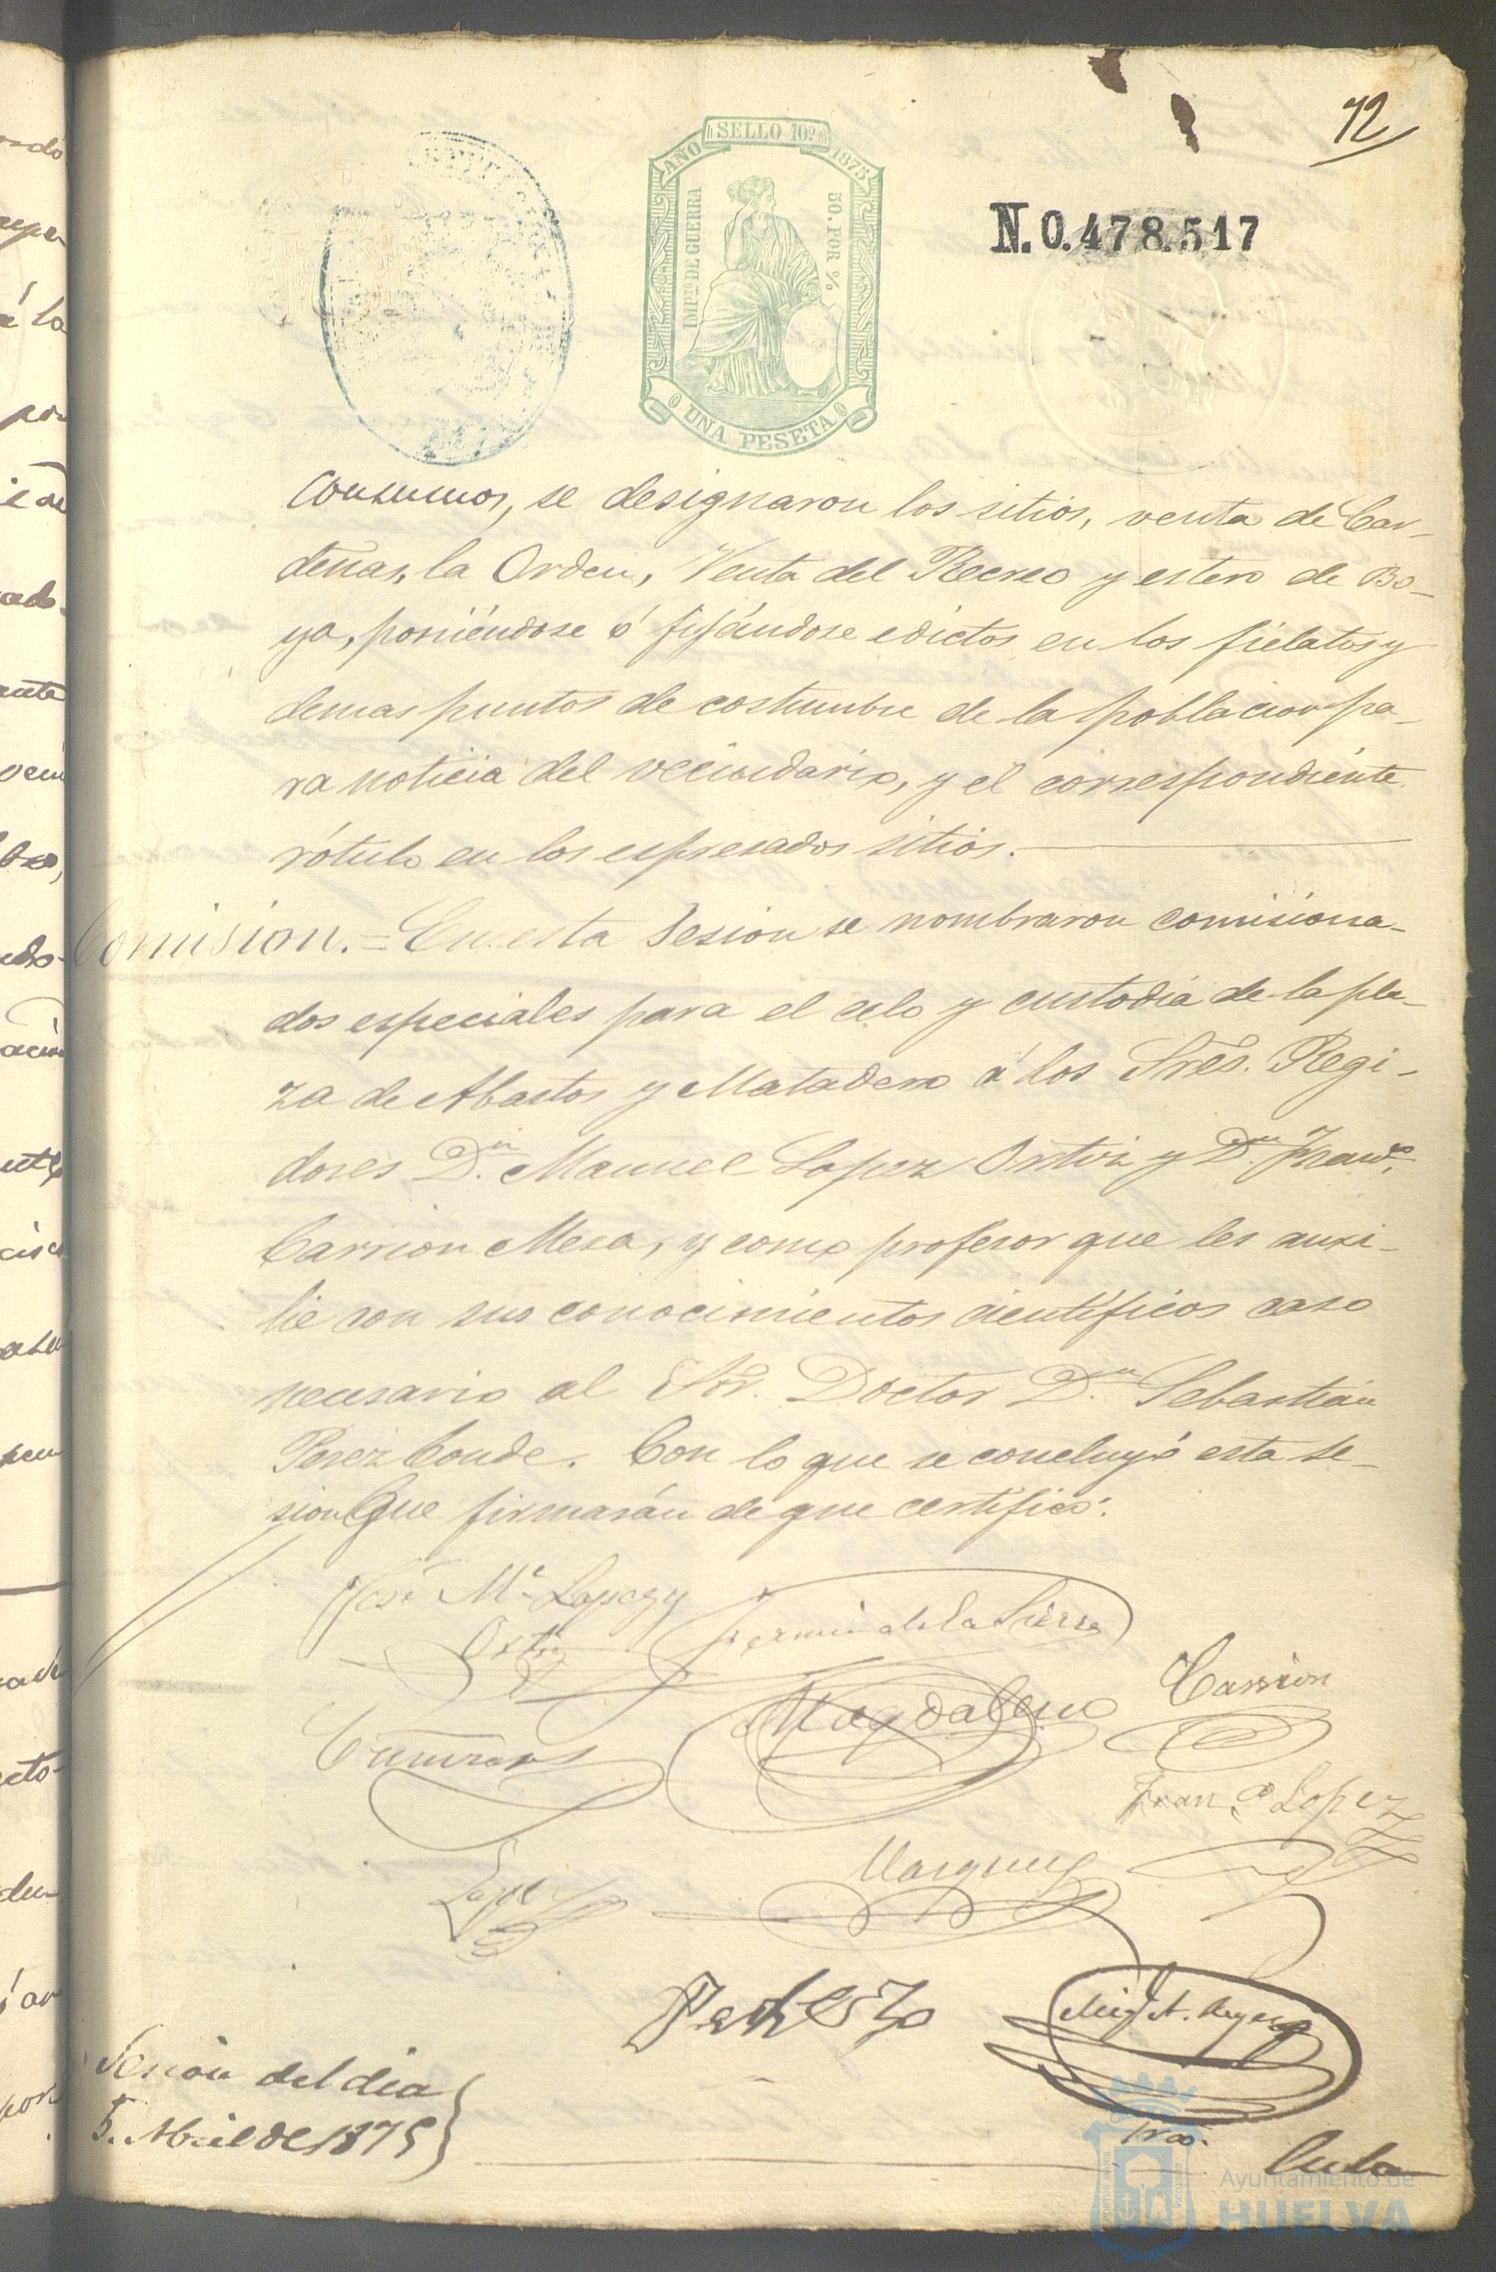 72
SELLO 10º
AÑO 1875
IMPtO DE GUERRA
50. POR %
UNA PESETA
N. 0.478.517
Consumos, se designaron los sitios, venta de Car-
deñas, la Orden, Venta del Recreo y estero de Bo-
ya, poniéndose ó fijándose edictos en los fielatos y
demas puntos de costumbre de la poblacion pa-
ra noticia del vecindario, y el correspondiente
rótulo en los espresados sitios.
Comision. = En esta Sesion se nombraron comisiona-
dos especiales para el celo y custodia de la pla-
za de Abastos y Matadero á los Sres. Regi-
dores Dn. Manuel Lopez Ortiz y Dn. Franco.
Carrion Mesa, y como profesor que les auxi-
lie con sus conocimientos cientificos caso
necesario al Sor. Doctor Dn. Sebastián
Perez Conde. Con lo que se concluyó esta se-
sion que firmarán de que certifico:
José Ma. Lopez y
Ortiz
Fermin de la Sierra
Carrion
Magdaleno
Franco Lopez
Lopez
Marquez
Srio.
Sesion del dia
5. Abril de 1875
Ayuntamiento de
HUELVA